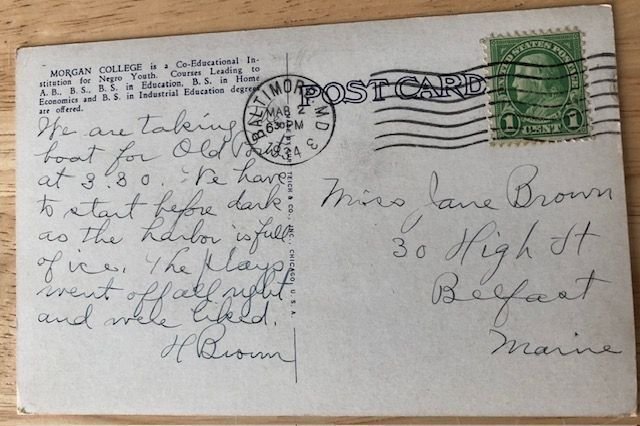 MORGAN COLLEGE is a Co-Educational In-
stitution for Negro Youth. Courses Leading to
A. B., B. S., B. S. in Education, B. S. in Home
Economics and B. S. in Industrial Education degrees
are offered.
We are taking
boat for Old
at 3.30. We have
to start before dark
as the harbor is full
of ice. The Plays
went off all right
and were liked.
H Brown
TEICH & CO., INC., CHICAGO, U. S. A.
BALTIMORE, MD 3
MAR 2
630 PM
1934
POST CARD
UNITED STATES POSTAGE
1 CENT 1
Miss Jane Brown
30 High St
Belfast
Maine